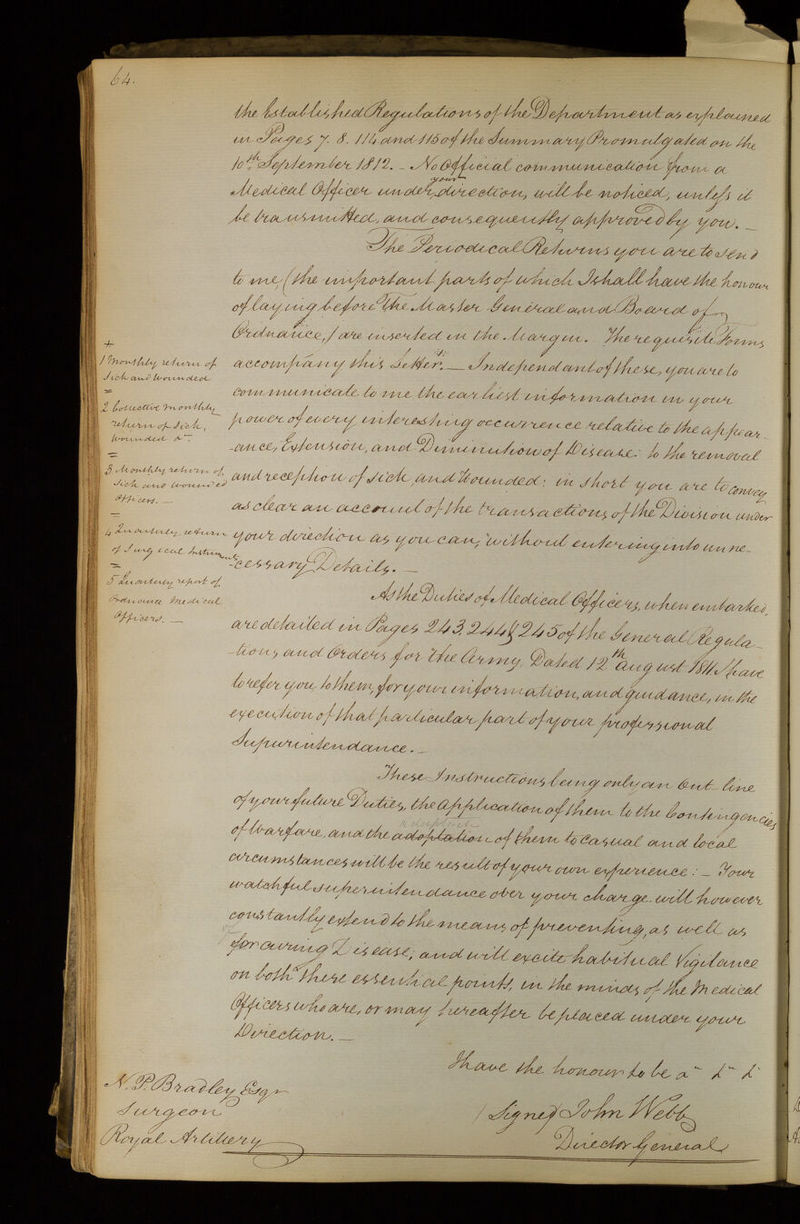 64.
the Established Regulations of the Department as explained
in Pages 7. 8. 114 and 115 of the Summary Promulgated on the
10th September 1812. - No Official communication from a
Medical Officer under your direction, will be noticed, unless it
be transmitted, and consequently approved by you. _
The Periodical Returns you are to send
to me, (the important parts of which I shall have the honour
of laying before the Master General and Board of
Ordnance,) are inserted in the Margin. The requisite Forms
accompany this Letter. _ Independant of these, you are to
communicate to me the earliest information in your
power of every interesting occurrence relative to the appear-
-ance, Extension, and Diminution of Disease: to the removal
and reception of Sick, and Wounded: in short you are to convey
as clear an account of the transactions of the Division under
your direction as you can, without entering into unne-
-cessary Details. _
+
1 Monthly return of
Sick and Wounded
=
2 Collective monthly
return of Sick,
Wounded &c
=
3 Monthly return of
Sick and wounded
Officers. _
=
4 Quarterly return
of Surgical Instruments
=
5 Quarterly report of
Ordnance Medical
Officers. _
As the Duties of Medical Officers, when embarked,
are detailed in Pages 243, 244 & 245 of the General Regula-
-tions and Orders for the Army, Dated 12th August 1811, I have
to refer you to them, for your information, and guidance, in the
execution of that particular part of your professional
Superintendance. _
These Instructions being only an Out-line
of your future Duties, the application of them to the Contingencies
of Warfare, and the adoptation of them to Casual and local
circumstances will be the result of your own experience: _ Your
watchful superintendance over your charge will however
constantly extend to the means of preventing, as well as
for curing Disease, and will excite habitual Vigilance
on both these essential points, in the minds of the Medical
Officers who are, or may hereafter be placed under your
Direction. _
I have the honour to be &c &c &
N. P. Bradley Esqr
Surgeon
Royal Artillery
(Signed) John Webb
Director General